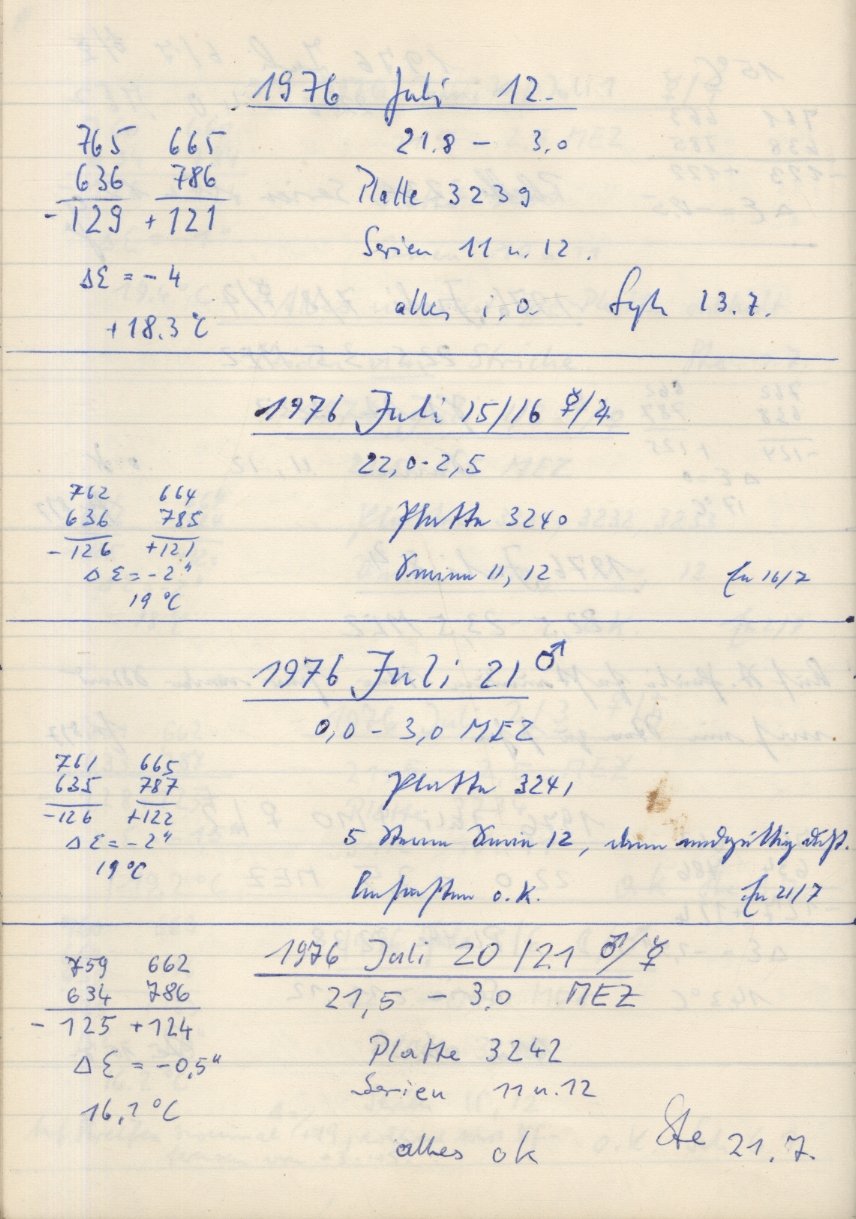 1976 Juli 12.
765 665
21,8 - 3,0
636 786
Platte 3239
-129 +121
Serien 11 u. 12.
ΔΣ = -4
alles i.O. 13.7.
+18.3°C
1976 Juli 15/16 ☿/♃
22,0-2,5
762 664
636 785
Platte 3240
-126 +121
ΔΣ = -2"
Serien 11, 12 16/7
19°C
1976 Juli 21 ♂
0,0 - 3,0 MEZ
761 665
635 787
Platte 3241
-126 +122
ΔΣ = -2"
5 Sterne Serie 12, dann endgültig
19°C
o.K. 21/7
1976 Juli 20/21 ♂/☿
759 662
634 786
21,5 - 3,0 MEZ
-125 +124
Platte 3242
ΔΣ = -0,5"
Serien 11 u. 12
16,2°C
alles ok Ste 21.7.